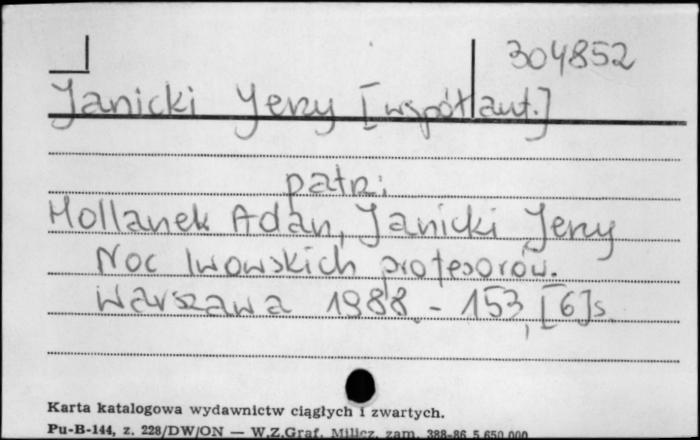 304852
Janicki Jerzy [współaut.]
patrz:
Hollanek Adam, Janicki Jerzy
Noc lwowskich profesorów.
Warszawa 1988. - 153, [6] s.
Karta katalogowa wydawnictw ciągłych i zwartych.
Pu-B-144, z. 228/DW/ON — W.Z.Graf. Milicz, zam. 388-86 5 650 000